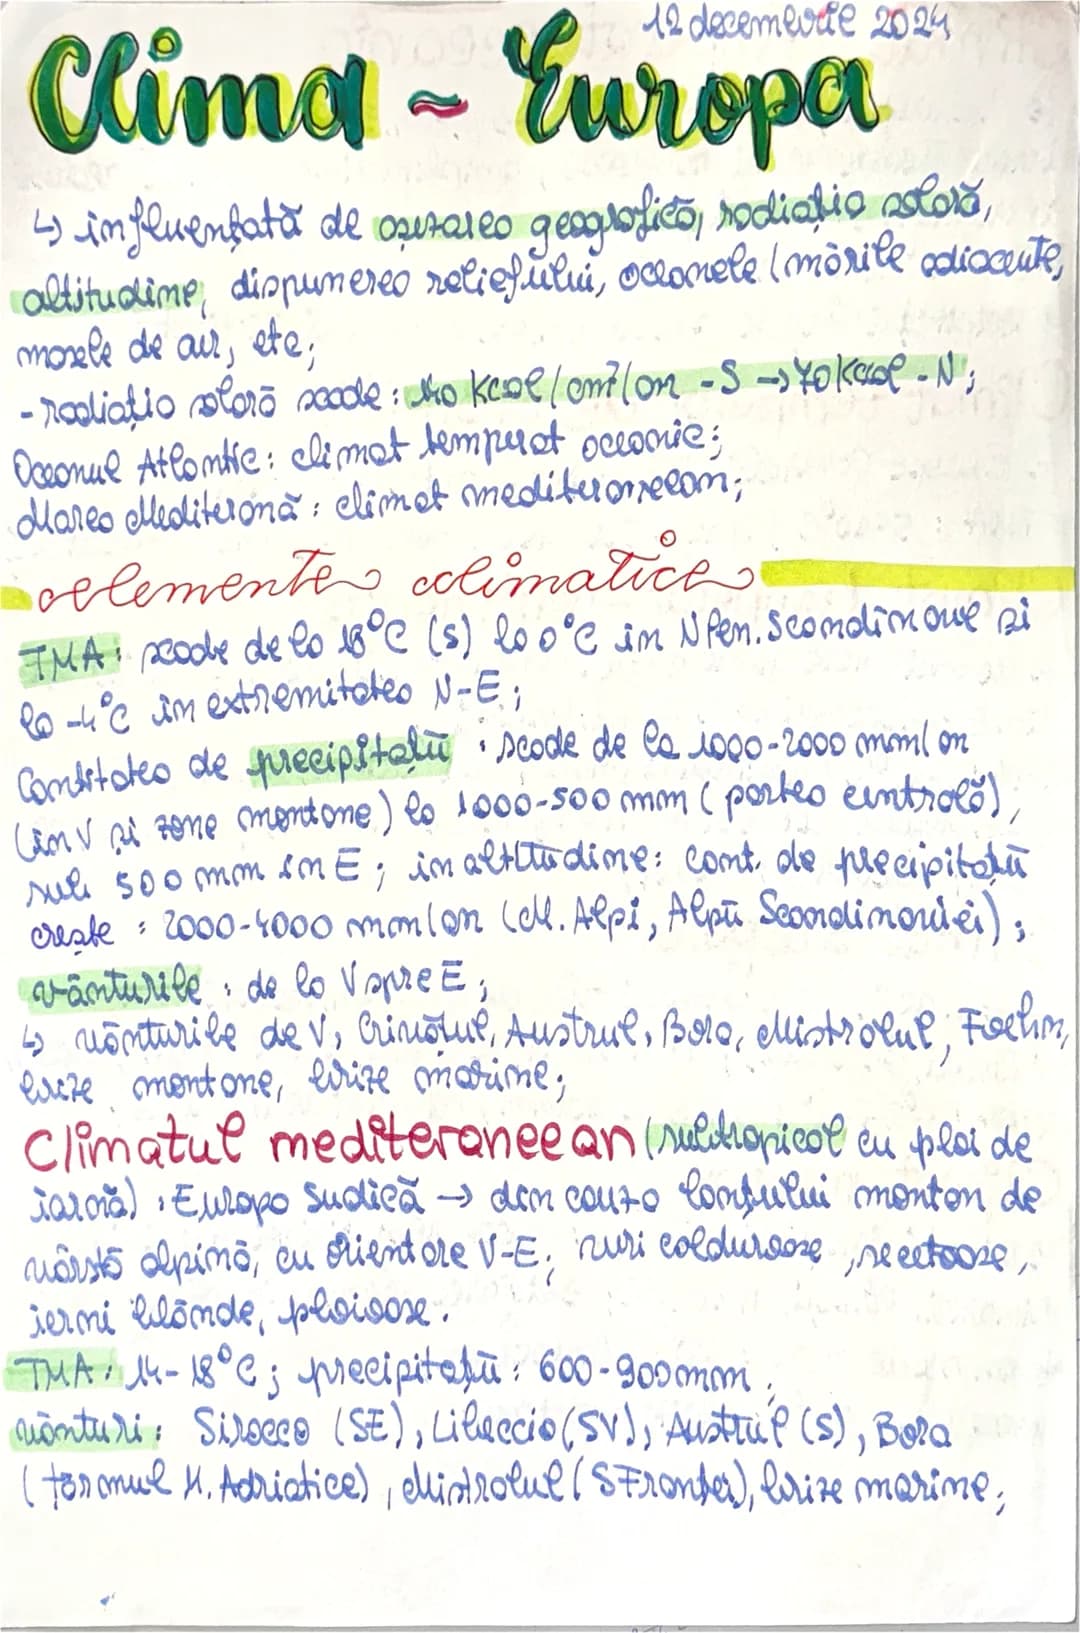 12 decembrie 2024
Clima ~ Europa
↳ influențată de așezarea geografică, radiația solară,
altitudine, dispunerea reliefului, oceanele / mările adiacente,
masele de aer, etc;
- radiația solară scade: 140 kcal/cm²/an - S → 70 kcal - N;
Oceanul Atlantic: climat temperat oceanic;
Marea Mediterană: climat mediteraneean;
elemente climatice
TMA: scade de la 18°C (S) la 0°C în N Pen. Scandinave și
la -4°C în extremitatea N-E;
Cantitatea de precipitații: scade de la 1000-2000 mm/an
(în V și zone montane) la 1000-500 mm (partea centrală),
sub 500 mm în E; în altitudine: cant. de precipitații
crește: 2000-4000 mm/an (M. Alpi, Alpii Scandinaviei);
vânturile: de la V spre E;
↳ vânturile de V, Crivățul, Austrul, Bora, Mistralul, Foehn,
brize montane, brize marine;
Climatul mediteraneean (subtropical cu ploi de
iarnă): Europa Sudică → din cauza lanțului montan de
vârstă alpină, cu orientare V-E; veri călduroase, secetoase,
ierni blânde, ploioase.
TMA: 14-18°C; precipitații: 600-900mm;
vânturi: Sirocco (SE), Libeccio (SV), Austrul (S), Bora
(țărmul M. Adriatice), Mistralul (S Franței), brize marine;